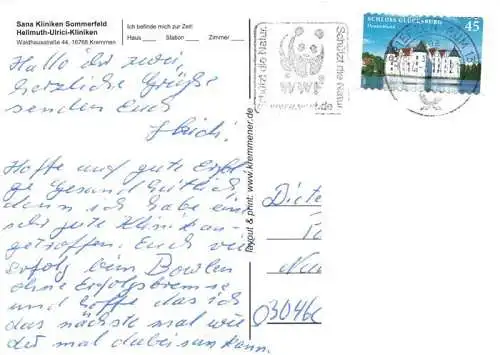 Sana Kliniken Sommerfeld
Hellmuth-Ulrici-Kliniken
Waldhausstraße 44, 16766 Kremmen
Ich befinde mich zur Zeit:
Haus Station Zimmer
Hallo Ihr zwei,
herzliche Grüße
senden Euch
Hoffe auf gute Erfol
ge Gesundheitlich,
denn ich habe eine
sehr gute Klinik an-
getroffen. Euch viel
erfolg beim Bowlen
ohne Erfolgsbremse
und hoffe das ich
das nächste mal wie
der mal dabei sein kann.
layout & print: www.kremmener.de
Schützt die Natur.
WWF
www.wwf.de
Schützt die Natur.
SCHLOSS GLÜCKSBURG
Deutschland
45
Diete
Na
03046